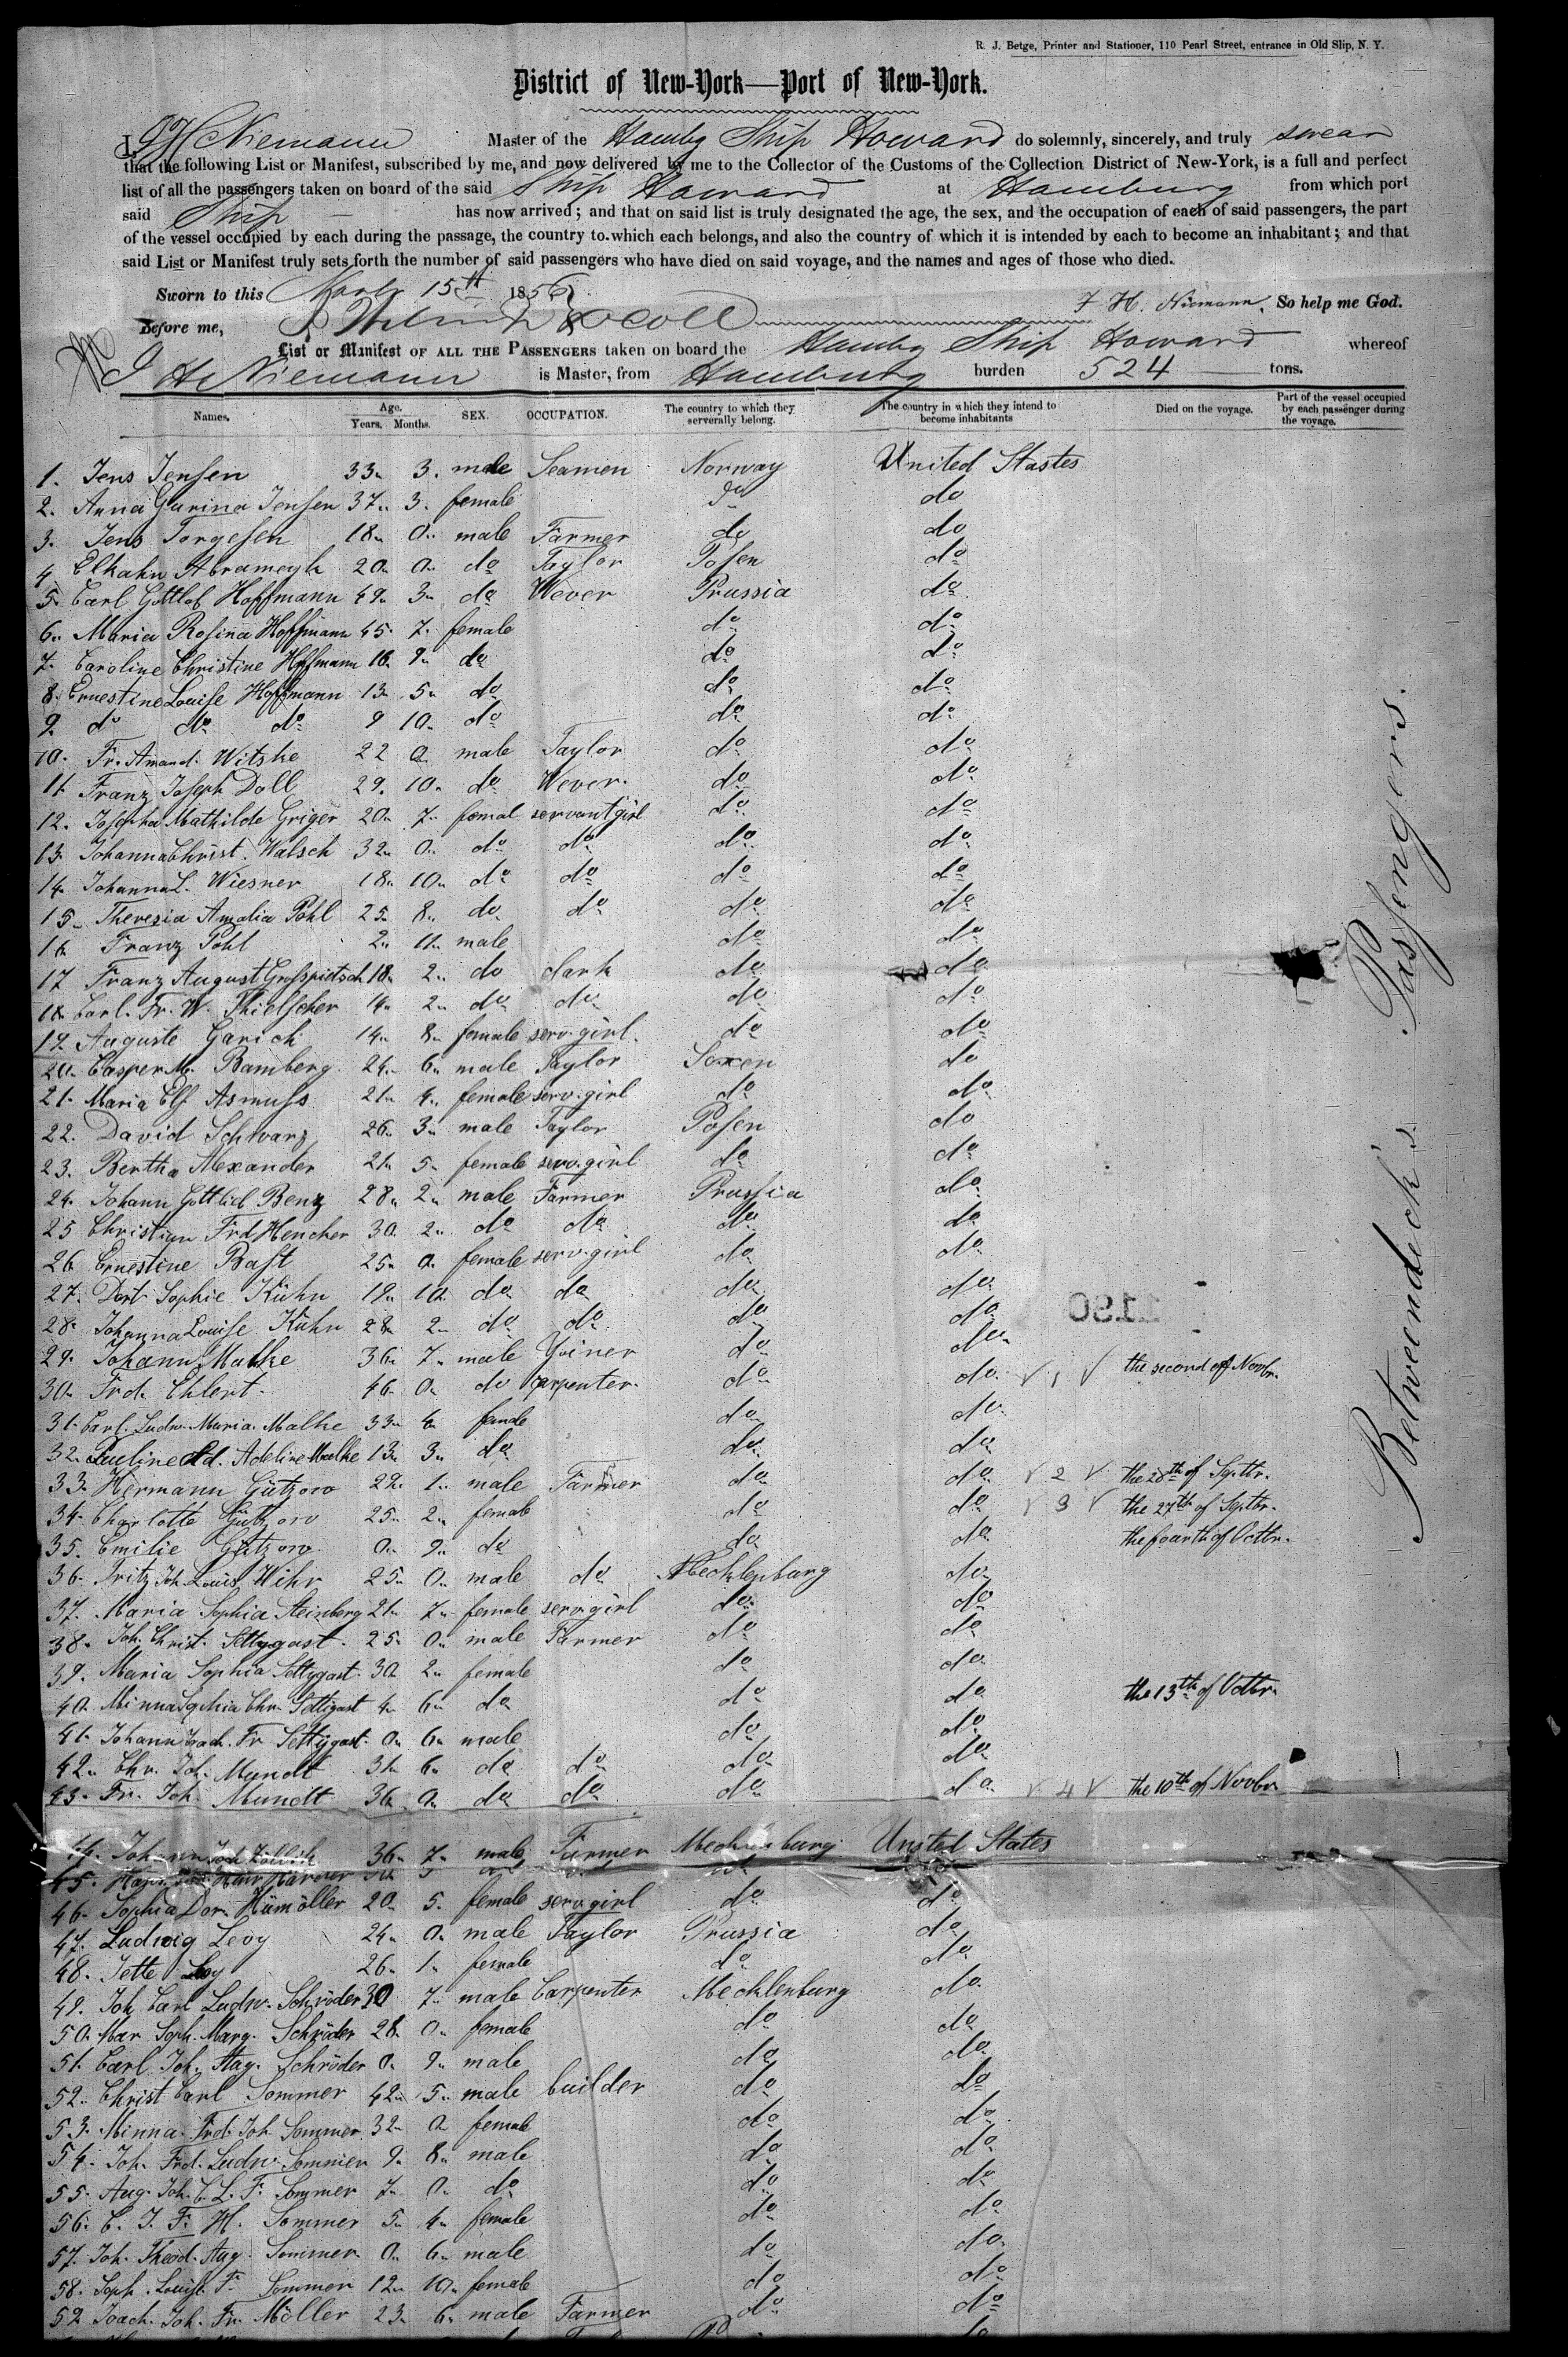 R. J. Betge, Printer and Stationer, 110 Pearl Street, entrance in Old Slip, N. Y.
District of New-York—Port of New-York.
I, Niemann Master of the Hambg Ship Howard do solemnly, sincerely, and truly swear
that the following List or Manifest, subscribed by me, and now delivered by me to the Collector of the Customs of the Collection District of New-York, is a full and perfect
list of all the passengers taken on board of the said Ship Howard at Hamburg from which port
said Ship — has now arrived; and that on said list is truly designated the age, the sex, and the occupation of each of said passengers, the part
of the vessel occupied by each during the passage, the country to which each belongs, and also the country of which it is intended by each to become an inhabitant; and that
said List or Manifest truly sets forth the number of said passengers who have died on said voyage, and the names and ages of those who died.
Sworn to this 15th 1856
H. Niemann. So help me God.
Before me,
List or Manifest OF ALL THE PASSENGERS taken on board the Hambg Ship Howard whereof
Niemann is Master, from Hamburg burden 524 tons.
Names. Age. Years. Months. SEX. OCCUPATION. The country to which they serverally belong. The country in which they intend to become inhabitants Died on the voyage. Part of the vessel occupied by each passenger during the voyage.
1. Jens Jensen 33 3. male Seamen Norway United Stastes
2. Anna Gurina Jensen 37 3. female do do
3. Jens Torgesen 18 0 male Farmer do do
4 Elkahn 20 0 do Taylor Posen do
5. Carl Gottlob Hoffmann 49 3 do Wever Prussia do
6. Maria Rosina Hoffmann 45 7 female do do
7. Caroline Christine Hoffmann 16 9 do do do
8. Ernestine Louise Hoffmann 13 5 do do do
9. do do do 9 10 do do do
10. Fr. Amand. Witzke 22 0 male Taylor do do
11. Franz Joseph Doll 29. 10 do Wever. do do
12. Josepha Mathilde Griger 20 7 femal servant girl do do
13. Johanna Christ. Walsch 32 0 do do do do
14. Johanna L. Wiesner 18 10 do do do do
15. Theresia Amalia Pohl 25 8 do do do do
16 Franz Pohl 2 11 male do do
17 Franz August Grosspietsch 18 2 do clark do do
18 Carl. Fr. W. Thielscher 14 2 do do do do
19. Auguste Garich 14 8 female serv. girl. do do
20. Casper M. Bamberg 24 6 male Taylor Saxen do
21. Maria Els Asmuss 21 4 female serv. girl do do
22. David Schwarz 26 3 male Taylor Posen do
23. Bertha Alexander 21 5 female serv. girl do do
24. Johann Gottlieb Benz 28 2 male Farmer Prussia do
25 Christian Frd Hencher 30 2 do do do do
26 Ernestine Bast 25 0 female serv. girl do do
27. Dort Sophie Kühn 19 10 do do do do
28. Johanna Louise Kühn 28 2 do do do do
29. Johann Malke 36 7 male Yoiner do do
30. Frd. Ehlert. 46 0 do carpenter. do do 1 the second of Novbr.
31. Carl. Ludw. Maria. Malke 33 4 female do do
32. Pauline Ad. Adeline Malke 13 3 do do do
33. Hermann Gützow 22 1 male Farmer do do 2 the 28th of Septbr.
34. Charlotte Gützow 25 2 female do do 3 the 27th of Septbr.
35. Emilie Gützow 0 9 do do do the fourth of Octbr.
36. Fritz Joh. Louis Wihr 25 0 male do Mecklenburg do
37. Maria Sophia Steinberg 21 7 female serv. girl do do
38. Joh. Christ. Settgast. 25 0 male Farmer do do
39. Maria Sophia Settgast. 30 2 female do do
40. Minna Sophia Chr. Settgast 4 6 do do do the 13th of Octbr.
41. Johann Joach. Fr Settgast. 0 6 male do do
42. Chr. Joh. Mundt 31 6 do do do do
43. Fr. Joh. Mundt 36 0 do do do do 4 the 10th of Novbr
44. Johann Joh 36 7 male Farmer Mecklenburg United States
45. Harder
46. Sophia Dor. Hümöller 20 5. female serv. girl do do
47. Ludwig Levy 24 0 male Taylor Prussia do
48. Jette Levy 26 1 female do do
49. Joh Carl Ludw. Schröder 30 7 male Carpenter Mecklenburg do
50. Mar Soph. Marg. Schröder 28 0 female do do
51. Carl Joh. Aug. Schröder 0 9 male do do
52. Christ Carl Sommer 42 5 male builder do do
53. Minna Frd. Joh Sommer 32 0 female do do
54. Joh. Frd. Ludw. Sommer 9 8 male do do
55. Aug. Joh. C. L. F. Sommer 7 0 do do do
56. C. J. F. H. Sommer 5 4 female do do
57. Joh. Theod. Aug. Sommer 0 6 male do do
58. Soph. Louise F. Sommer 12 10 female do do
59 Joach. Joh. Fr. Möller 23 6 male Farmer do do
Betweendeck's Passengers.
1190